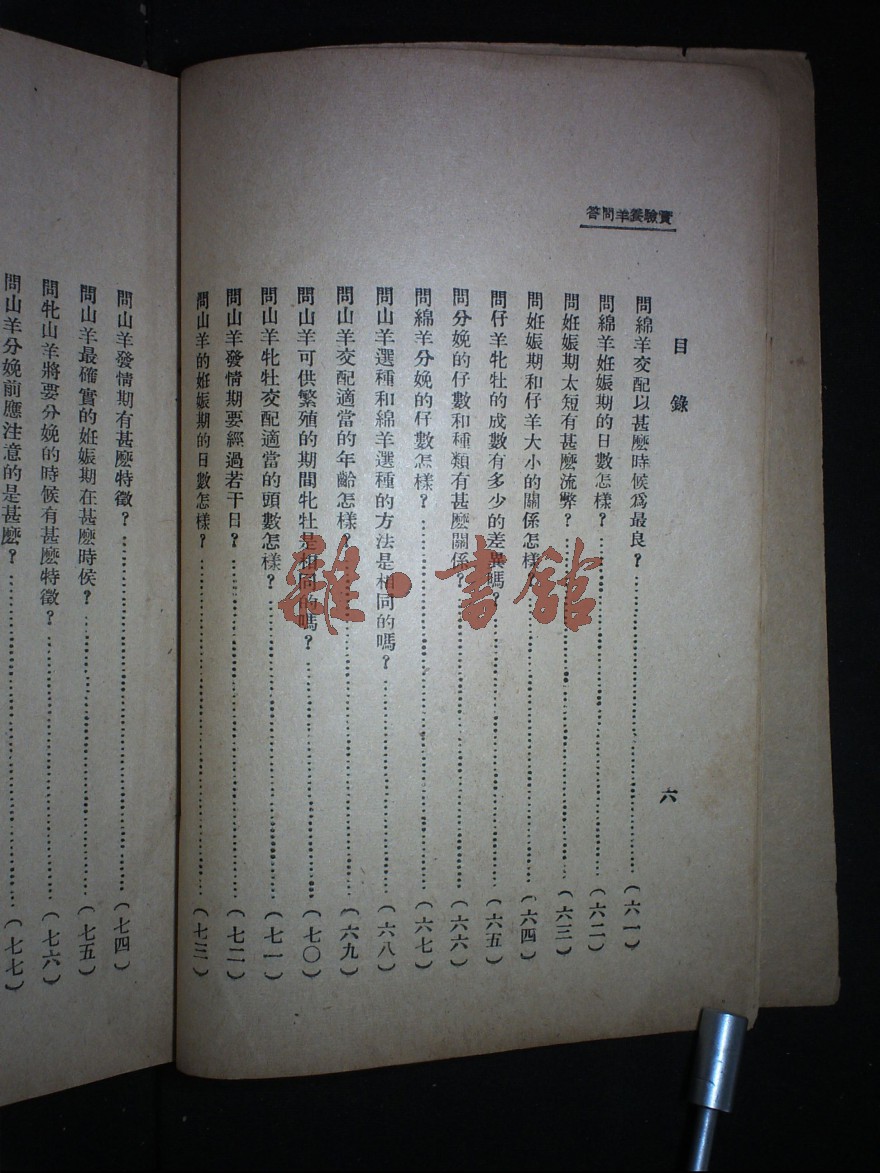 實驗養羊問答
目錄
六
問綿羊交配以甚麼時候爲最良？……(六一)
問綿羊妊娠期的日數怎樣？……(六二)
問妊娠期太短有甚麼流弊？……(六三)
問妊娠期和仔羊大小的關係怎樣？……(六四)
問仔羊牝牡的成數有多少的差異嗎？……(六五)
問分娩的仔數和種類有甚麼關係？……(六六)
問綿羊分娩的仔數怎樣？……(六七)
問山羊選種和綿羊選種的方法是相同的嗎？……(六八)
問山羊交配適當的年齡怎樣？……(六九)
問山羊可供繁殖的期間牝牡是相同的嗎？……(七〇)
問山羊牝牡交配適當的頭數怎樣？……(七一)
問山羊發情期要經過若干日？……(七二)
問山羊的妊娠期的日數怎樣？……(七三)
問山羊發情期有甚麼特徵？……(七四)
問山羊最確實的妊娠期在甚麼時侯？……(七五)
問牝山羊將要分娩的時候有甚麼特徵？……(七六)
問山羊分娩前應注意的是甚麼？……(七七)
雜·書館